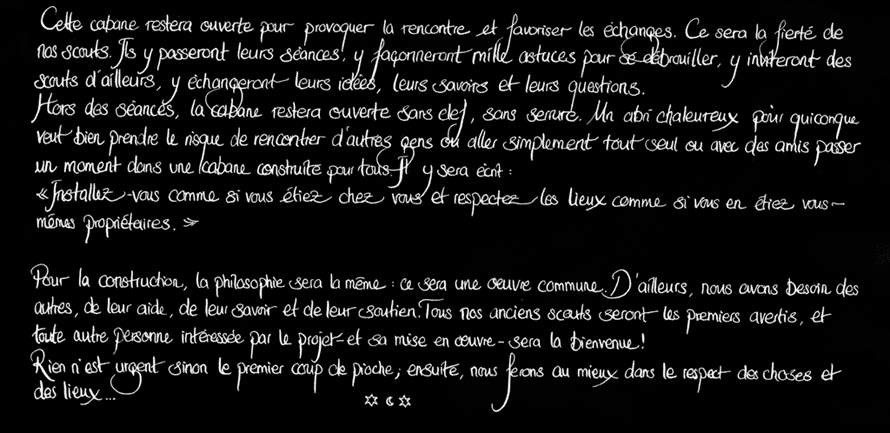 Cette cabane restera ouverte pour provoquer la rencontre et favoriser les échanges. Ce sera la fierté de
nos scouts. Ils y passeront leurs séances, y façonneront mille astuces pour se débrouiller, y inviteront des
scouts d'ailleurs, y échangeront leurs idées, leurs savoirs et leurs questions.
Hors des séances, la cabane restera ouverte sans clef, sans serrure. Un abri chaleureux pour quiconque
veut bien prendre le risque de rencontrer d'autres gens ou aller simplement tout seul ou avec des amis passer
un moment dans une cabane construite pour tous. Il y sera écrit :
« Installez-vous comme si vous étiez chez vous et respectez les lieux comme si vous en étiez vous-
mêmes propriétaires. »
Pour la construction, la philosophie sera la même : ce sera une œuvre commune. D'ailleurs, nous avons besoin des
autres, de leur aide, de leur savoir et de leur soutien. Tous nos anciens scouts seront les premiers avertis, et
toute autre personne intéressée par le projet - et sa mise en œuvre - sera la bienvenue !
Rien n'est urgent sinon le premier coup de pioche ; ensuite, nous ferons au mieux dans le respect des choses et
des lieux...